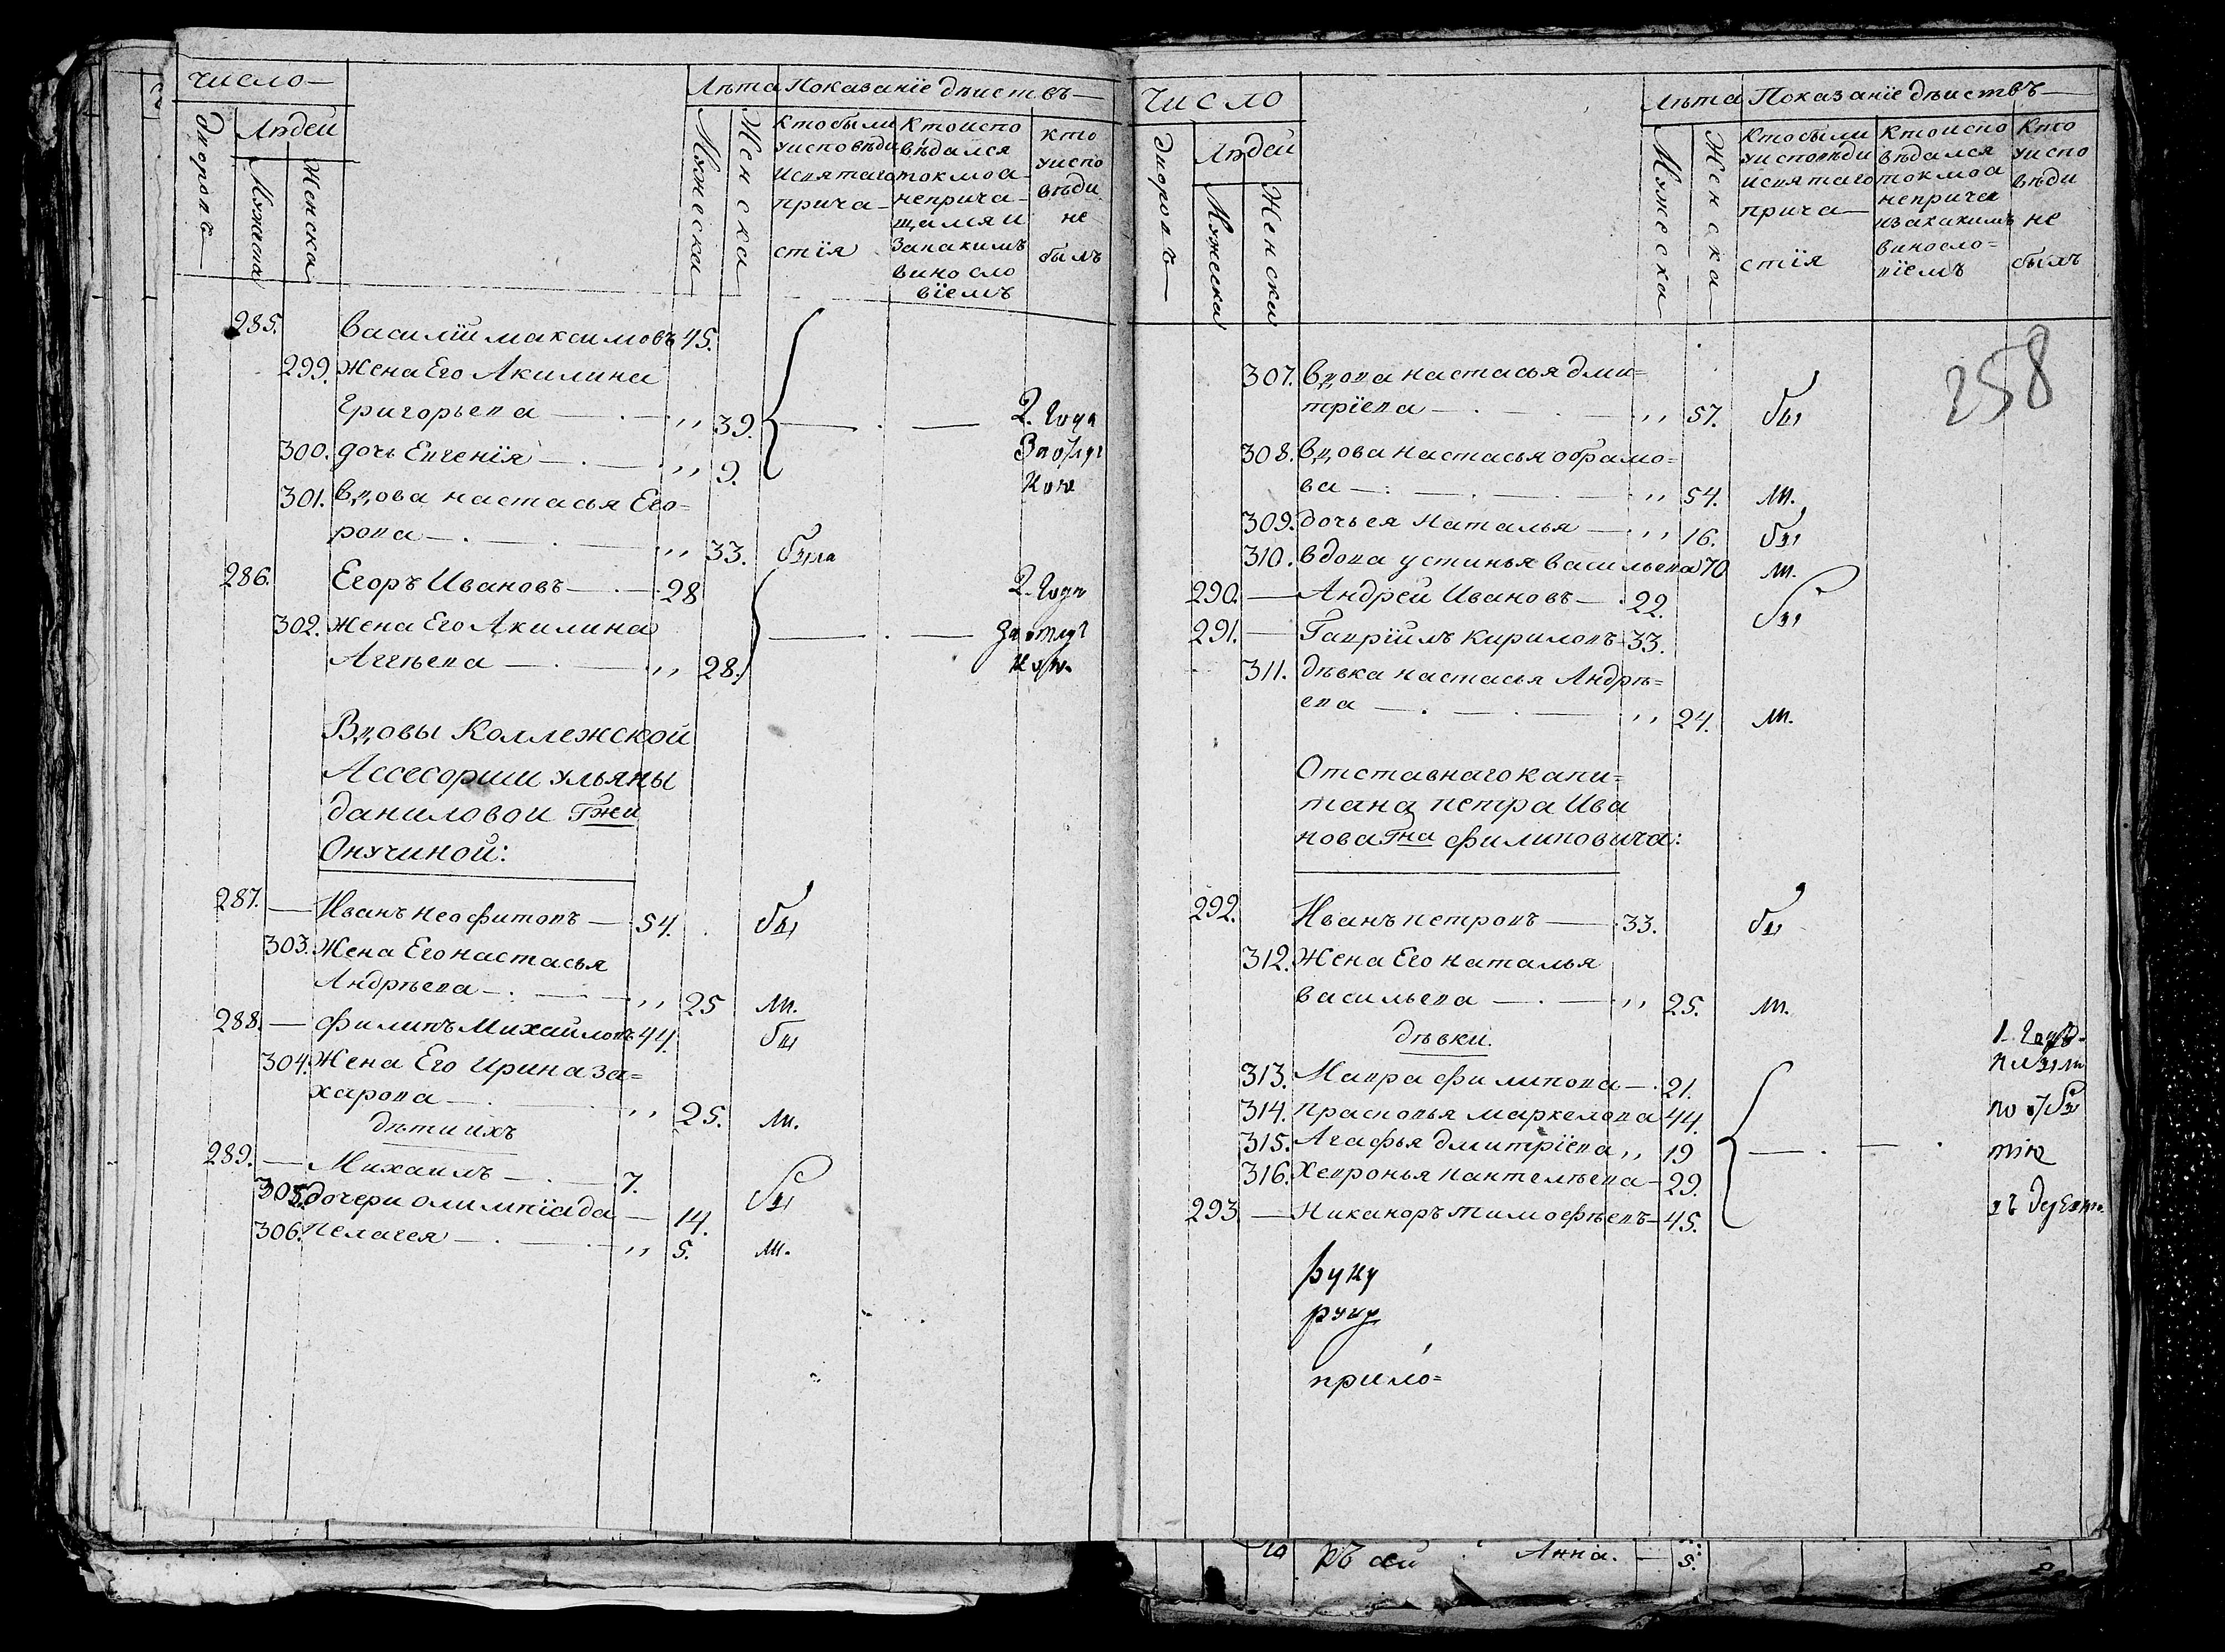 число
Лѣта Показанїе дѣиствъ
дворовъ
Людей
Мужеска
Женска
Мужеска
Женска
кто были у исповѣди и святаго причастїя
кто исповѣдался токмо а не причащался и за какимъ винословїемъ
кто у исповѣди не былъ
285. василїй максимовъ 45.
299. жена Его Акилина
григорьева — „ 39. 2. года
300. дочь Евгенїя — „ 9.
301. вдова настасья Его=
рова — „ 33. была
286. Егоръ Ивановъ — 28 2. года
302. жена Его Акилина
Аггѣева — „ 28.
Вдовы Коллежской
Ассесорши ульяны
даниловои Гжи
Онучиной:
287. — Иванъ неофитовъ — 54. бы
303. Жена Его настасья
Андрѣева — „ 25 ли.
288. — филипъ Михаиловъ 44. бы
304. Жена Его Ирина за=
харова — „ 25. ли.
дѣти ихъ
289. — Михаилъ — 7.
305. дочери олимпїада — 14. бы
306. пелагея — „ 5. ли.
число
Лѣта Показанїе дѣиствъ
дворовъ
Людей
Мужеска
Женска
Мужеска
Женска
кто были у исповѣди и святаго причастїя
кто исповѣдался токмо а не прича и за какимъ винословїемъ
кто у исповѣди не былъ
258
307. вдова настасья дми=
трїева — „ 57. бы
308. вдова настасья обрамо=
ва — „ 54. ли.
309. дочь ея наталья — „ 16. бы
310. вдова устинья васильева 70 ли.
290. — Андрей Ивановъ — 22. бы
291. — Гаврїилъ кириловъ 33.
311. дѣвка настасья Андрѣ=
ева — „ 24. ли.
Отставнаго капи=
тана петра Ива
нова Гна филиповича:
292. Иванъ петровъ — 33. бы
312. Жена Его наталья
васильева — „ 25. ли.
дѣвки.
313. Мавра филипова — 21.
314. прасковья маркелова 44.
315. Агафья дмитрїева „ 19
316. Хевронья пантелѣева — 29.
293. — Никаноръ тимофѣевъ — 45.
руку
руку
прило=
Анна. — 5.